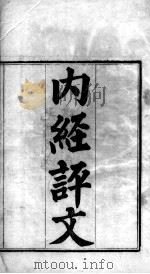 内經評文
mtoou.info